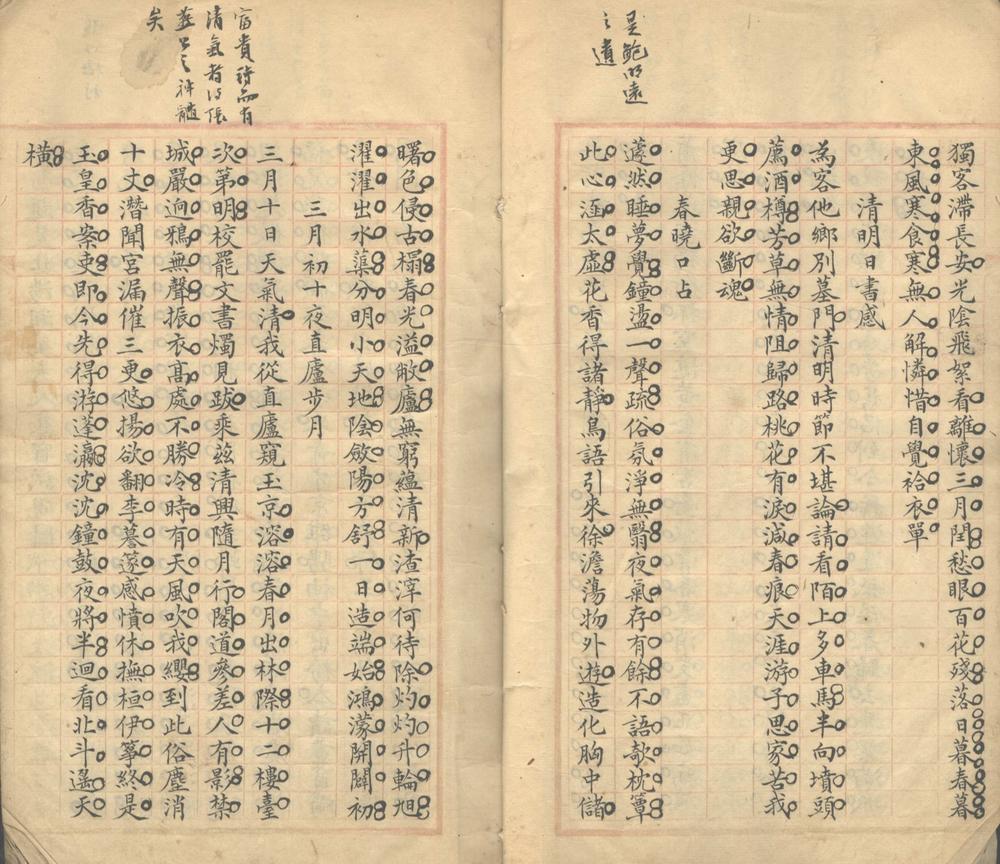 是鮑明遠
之遺
獨客滯長安光陰飛絮看離懷三月閏愁眼百花殘落日暮春暮
東風寒食寒無人解憐惜自覺袷衣單
清明日書感
為客他鄉別墓門清明時節不堪論請看陌上多車馬半向墳頭
薦酒樽芳草無情阻歸路桃花有淚減春痕天涯游子思家苦我
更思親欲斷魂
春曉口占
蘧然睡夢覺鐘盪一聲疏俗氛淨無翳夜氣存有餘不語欹枕簟
此心洭太虛花香得諸靜鳥語引來徐澹蕩物外遊造化胸中儲
富貴詩而有
清氣者得張
燕公之神髓
矣
曙色侵古榻春光溢敞廬無窮蘊清新渣滓何待除灼灼升輪旭
濯濯出水蕖分明小天地陰斂陽方舒一日造端始鴻濛開闢初
三月初十夜直廬步月
三月十日天氣清我從直廬窺玉京溶溶春月出林際十二樓臺
次第明校罷文書燭見跋乘茲清興隨月行閣道參差人有影禁
城嚴迥鴉無聲振衣高處不勝冷時有天風吹我纓到此俗塵消
十丈潛聞宮漏催三更悠揚欲翻李謩篴感憤休撫桓伊箏終是
玉皇香案吏即今先得游蓬瀛沈沈鐘鼓夜將半迴看北斗遙天
橫